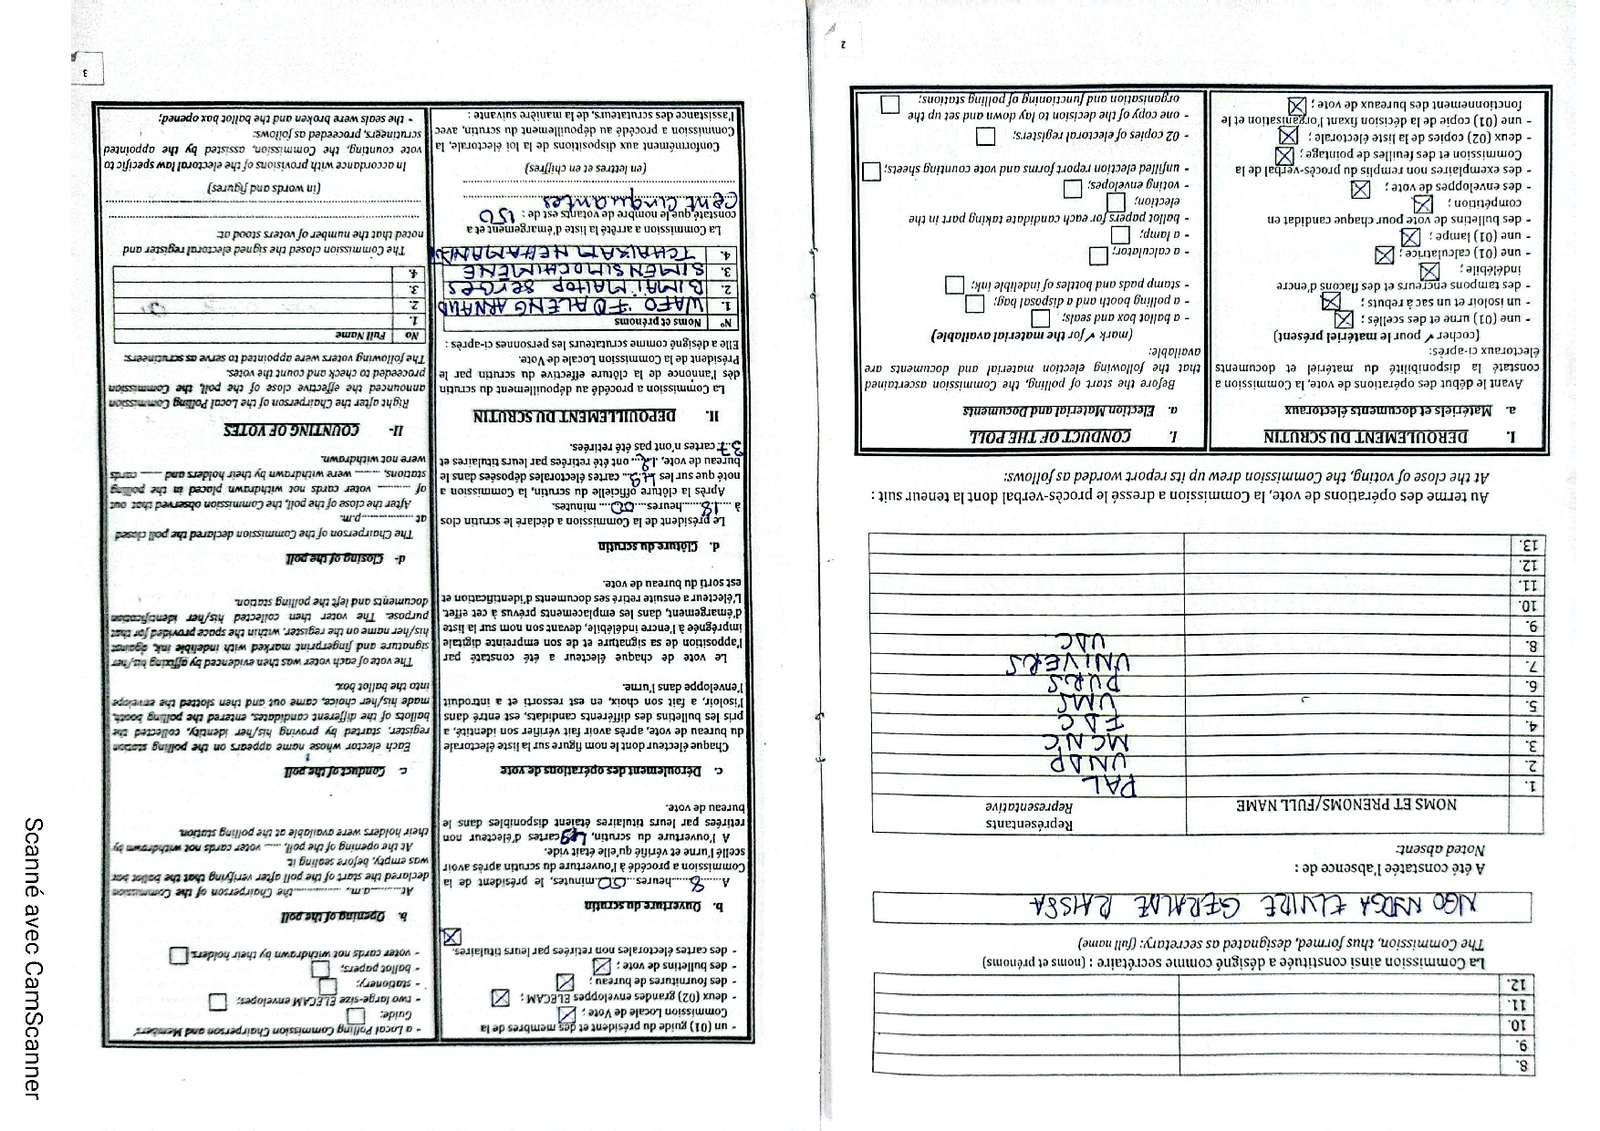 2
8.
9.
10.
11.
12.
La Commission ainsi constituée a désigné comme secrétaire : (noms et prénoms)
The Commission, thus formed, designated as secretary: (full name)
NGO NYOGA ELVIRE GERALDE RAISSA
A été constatée l'absence de :
Noted absent:
NOMS ET PRENOMS/FULL NAME
Représentants
Representative
1. PAL
2. UNDP
3. MCNC
4. FDC
5. UMS
6. PURS
7. UNIVERS
8. UDC
9.
10.
11.
12.
13.
Au terme des opérations de vote, la Commission a dressé le procès-verbal dont la teneur suit :
At the close of voting, the Commission drew up its report worded as follows:
I. DEROULEMENT DU SCRUTIN
a. Matériels et documents électoraux
Avant le début des opérations de vote, la Commission a
constaté la disponibilité du matériel et documents
électoraux ci-après:
(cocher ✓ pour le matériel présent)
- une (01) urne et des scellés ;
- un isoloir et un sac à rebuts ;
- des tampons encreurs et des flacons d'encre
indélébile ;
- une (01) calculatrice ;
- une (01) lampe ;
- des bulletins de vote pour chaque candidat en
compétition ;
- des enveloppes de vote ;
- des exemplaires non remplis du procès-verbal de la
Commission et des feuilles de pointage ;
- deux (02) copies de la liste électorale ;
- une (01) copie de la décision fixant l'organisation et le
fonctionnement des bureaux de vote ;
I. CONDUCT OF THE POLL
a. Election Material and Documents
Before the start of polling, the Commission ascertained
that the following election material and documents are
available:
(mark ✓ for the material available)
- a ballot box and seals;
- a polling booth and a disposal bag;
- stamp pads and bottles of indelible ink;
- a calculator;
- a lamp;
- ballot papers for each candidate taking part in the
election;
- voting envelopes;
- unfilled election report forms and vote counting sheets;
- 02 copies of electoral registers;
- one copy of the decision to lay down and set up the
organisation and functioning of polling stations;
3
- un (01) guide du président et des membres de la
Commission Locale de Vote ;
- deux (02) grandes enveloppes ELECAM ;
- des fournitures de bureau ;
- des bulletins de vote ;
- des cartes électorales non retirées par leurs titulaires.
b. Ouverture du scrutin
A 8 heures 00 minutes, le président de la
Commission a procédé à l'ouverture du scrutin après avoir
scellé l'urne et vérifié qu'elle était vide.
A l'ouverture du scrutin, 49 cartes d'électeur non
retirées par leurs titulaires étaient disponibles dans le
bureau de vote.
c. Déroulement des opérations de vote
Chaque électeur dont le nom figure sur la liste électorale
du bureau de vote, après avoir fait vérifier son identité, a
pris les bulletins des différents candidats, est entré dans
l'isoloir, a fait son choix, en est ressorti et a introduit
l'enveloppe dans l'urne.
Le vote de chaque électeur a été constaté par
l'apposition de sa signature et de son empreinte digitale
imprégnée à l'encre indélébile, devant son nom sur la liste
d'émargement, dans les emplacements prévus à cet effet.
L'électeur a ensuite retiré ses documents d'identification et
est sorti du bureau de vote.
d. Clôture du scrutin
Le président de la Commission a déclaré le scrutin clos
à 18 heures 00 minutes.
Après la clôture officielle du scrutin, la Commission a
noté que sur les 49 cartes électorales déposées dans le
bureau de vote, 12 ont été retirées par leurs titulaires et
37 cartes n'ont pas été retirées.
II. DEPOUILLEMENT DU SCRUTIN
La Commission a procédé au dépouillement du scrutin
dès l'annonce de la clôture effective du scrutin par le
Président de la Commission Locale de Vote.
Elle a désigné comme scrutateurs les personnes ci-après :
N° Noms et prénoms
1. WAFO FDALENG ARNAUD
2. BIMAI MALTOP SERGES
3. SIMENSIMOCHIMENE
4.
La Commission a arrêté la liste d'émargement et a
constaté que le nombre de votants est de : 150
Cent cinquantes
(en lettres et en chiffres)
Conformément aux dispositions de la loi électorale, la
Commission a procédé au dépouillement du scrutin, avec
l'assistance des scrutateurs, de la manière suivante :
- a Local Polling Commission Chairperson and Members'
Guide;
- two large-size ELECAM envelopes;
- stationery;
- ballot papers;
- voter cards not withdrawn by their holders.
b. Opening of the poll
At............a.m., ............the Chairperson of the Commission
declared the start of the poll after verifying that the ballot box
was empty, before sealing it.
At the opening of the poll, ...... voter cards not withdrawn by
their holders were available at the polling station.
c. Conduct of the poll
Each elector whose name appears on the polling station
register, started by proving his/her identity, collected the
ballots of the different candidates, entered the polling booth,
made his/her choice, came out and then slotted the envelope
into the ballot box.
The vote of each voter was then evidenced by affixing his/her
signature and fingerprint marked with indelible ink, against
his/her name on the register, within the space provided for that
purpose. The voter then collected his/her identification
documents and left the polling station.
d- Closing of the poll
The Chairperson of the Commission declared the poll closed
at ..................p.m.
After the close of the poll, the Commission observed that out
of ......... voter cards not withdrawn placed in the polling
stations, ...... were withdrawn by their holders and ...... cards
were not withdrawn.
II- COUNTING OF VOTES
Right after the Chairperson of the Local Polling Commission
announced the effective close of the poll, the Commission
proceeded to check and count the votes.
The following voters were appointed to serve as scrutineers:
No Full Name
1.
2.
3.
4.
The Commission closed the signed electoral register and
noted that the number of voters stood at:
(in words and figures)
In accordance with provisions of the electoral law specific to
vote counting, the Commission, assisted by the appointed
scrutineers, proceeded as follows:
- the seals were broken and the ballot box opened;
Scanné avec CamScanner